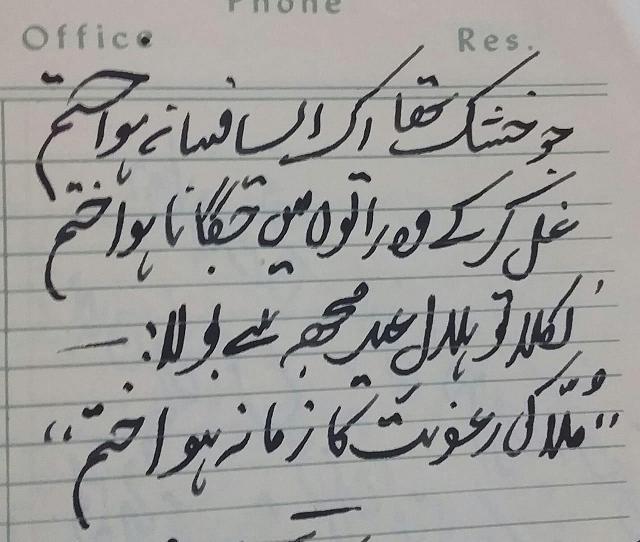 Phone
Office Res.
جو خشک تھا اک ایسا فسانہ ہوا ختم
غل کر کے وہ راتوں میں جگانا ہوا ختم
نکلا تو ہلال عید مجھ سے بولا :—
"ملّا کی رعونت کا زمانہ ہوا ختم"